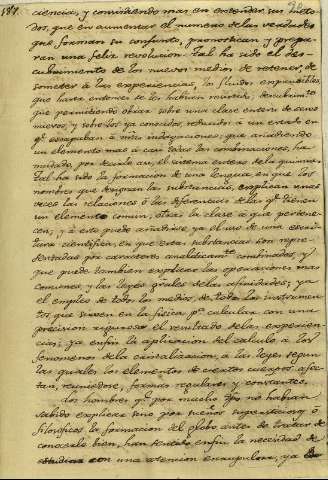 187.
ciencias, y convirtiendo mas en extender sus meto-
dos, que en aumentar el numero de las verdades
que forman su conjunto, pronostican y prepa-
ran una feliz revolucion. Tal ha sido el des-
cubrimiento de los nuevos medios de retener, de
someter á las experiencias, los fluidos expansibles,
que hasta entonces se les habian resistido, descubrimto
que permitiendo obrar sobre una clase entera de entes
nuevos, y sobre los ya conocidos reducidos á un estado en
qe escapaban á nras indagaciones; que añadiendo
un elemento mas á casi todas las combinaciones, ha
mudado, por decirlo asi, el sistema entero de la quimica.
Tal ha sido la formacion de una lengua en que los
nombres que designan las substancias, explican unas
veces las relaciones ó las diferencias de las qe tienen
un elemento comun, otras la clase á que pertene-
cen; y á esto puede añadirse ya el uso de una escri-
tura cientifica, en que estas substancias son repre-
sentadas por caracteres analiticamte combinados, y
que puede tambien explicar las operaciones mas
comunes, y las leyes grales de las afinidades; ya
el empleo de todos los medios, de todos los instrumen-
tos, que sirven en la fisica pa calcular con una
precision rigurosa el resultado de las experien-
cias; ya enfin la aplicacion del calculo á los
fenomenos de la cristalizacion, á las leyes segun
las quales los elementos de ciertos cuerpos afec-
tan, reuniendose, formas regulares y constantes.
Los hombres qe por mucho tpo no habian
sabido explicar sino por sueños supersticiosos ó
filosoficos la formacion del globo antes de tratar de
conocerle bien, han sentido enfin la necesidad de
estudiar con una atencion escrupulosa, ya